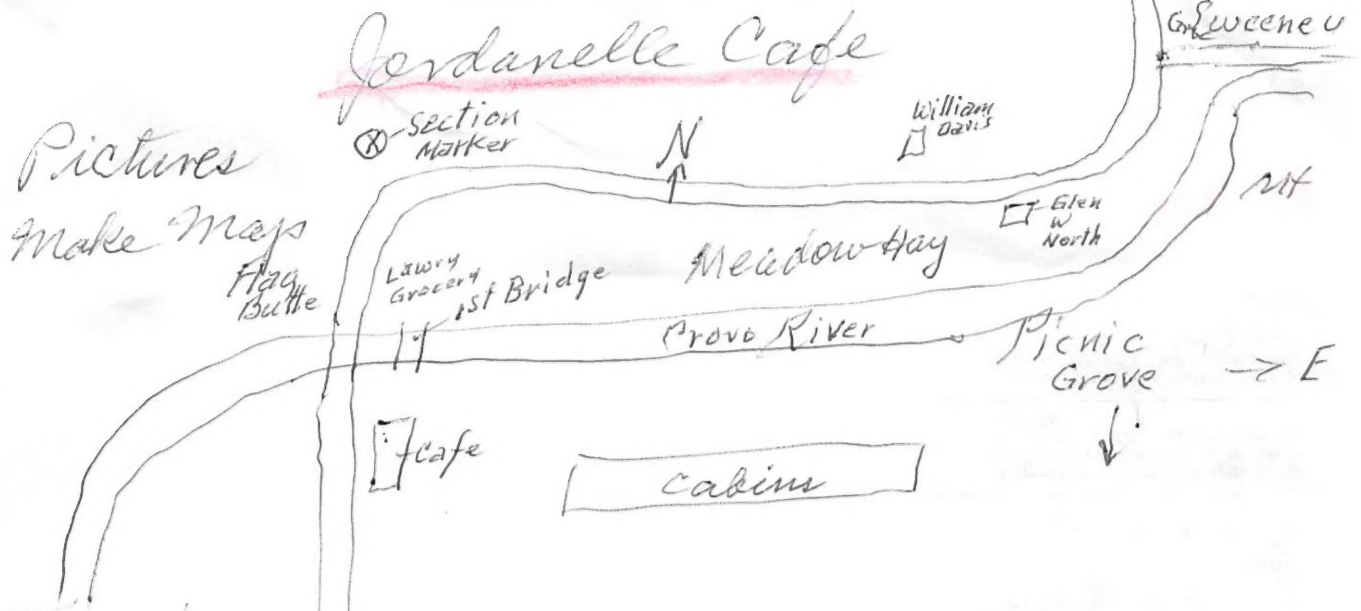 Jordanelle Cafe
Pictures
Make Map
Section
Marker
N
William
Davis
Sweeney
Glen
W
North
Flag
Butte
Lawry
Grocery
1st Bridge
Meadow Hay
Provo River
Picnic
Grove
→ E
Cafe
Cabins